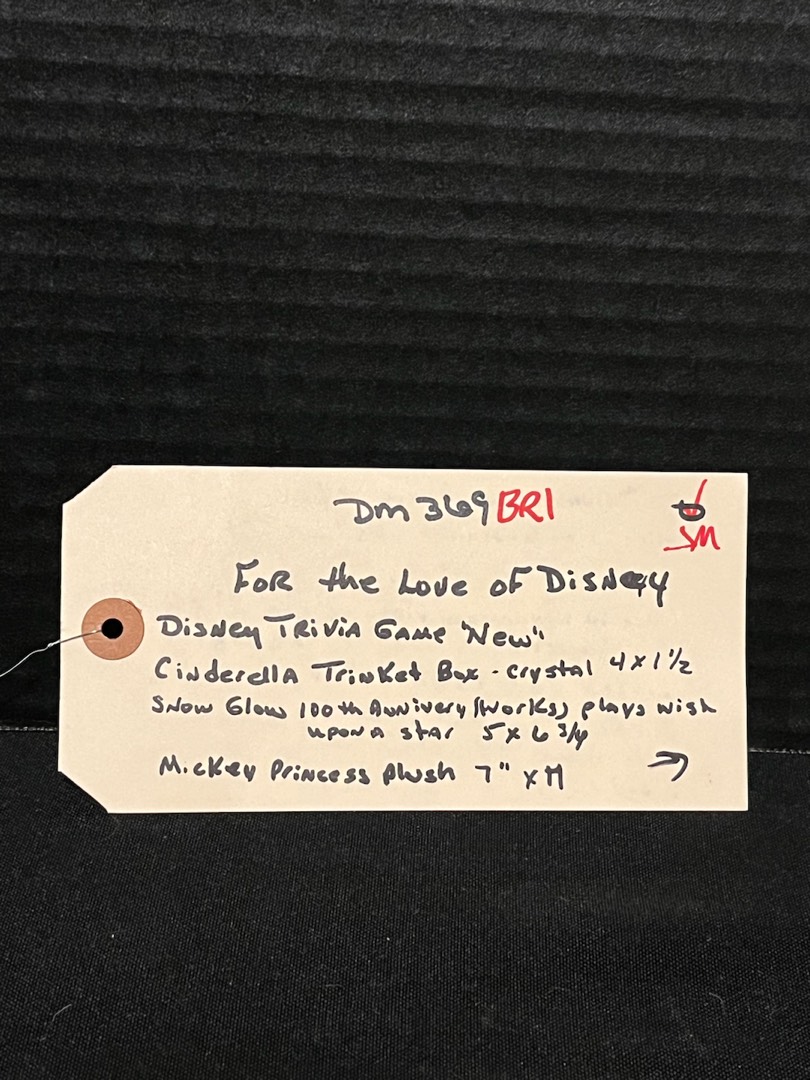 Dm369 BR1
SM
FOR the Love oF DisNey
DisNey TRiViA GAMe "New"
CiNderellA TriNket Box - crystal 4 x 1 1/2
SNow Glow 100th ANNivery (Works) plays wish
upon a star 5 x 6 3/4
Mickey PriNcess plush 7" x